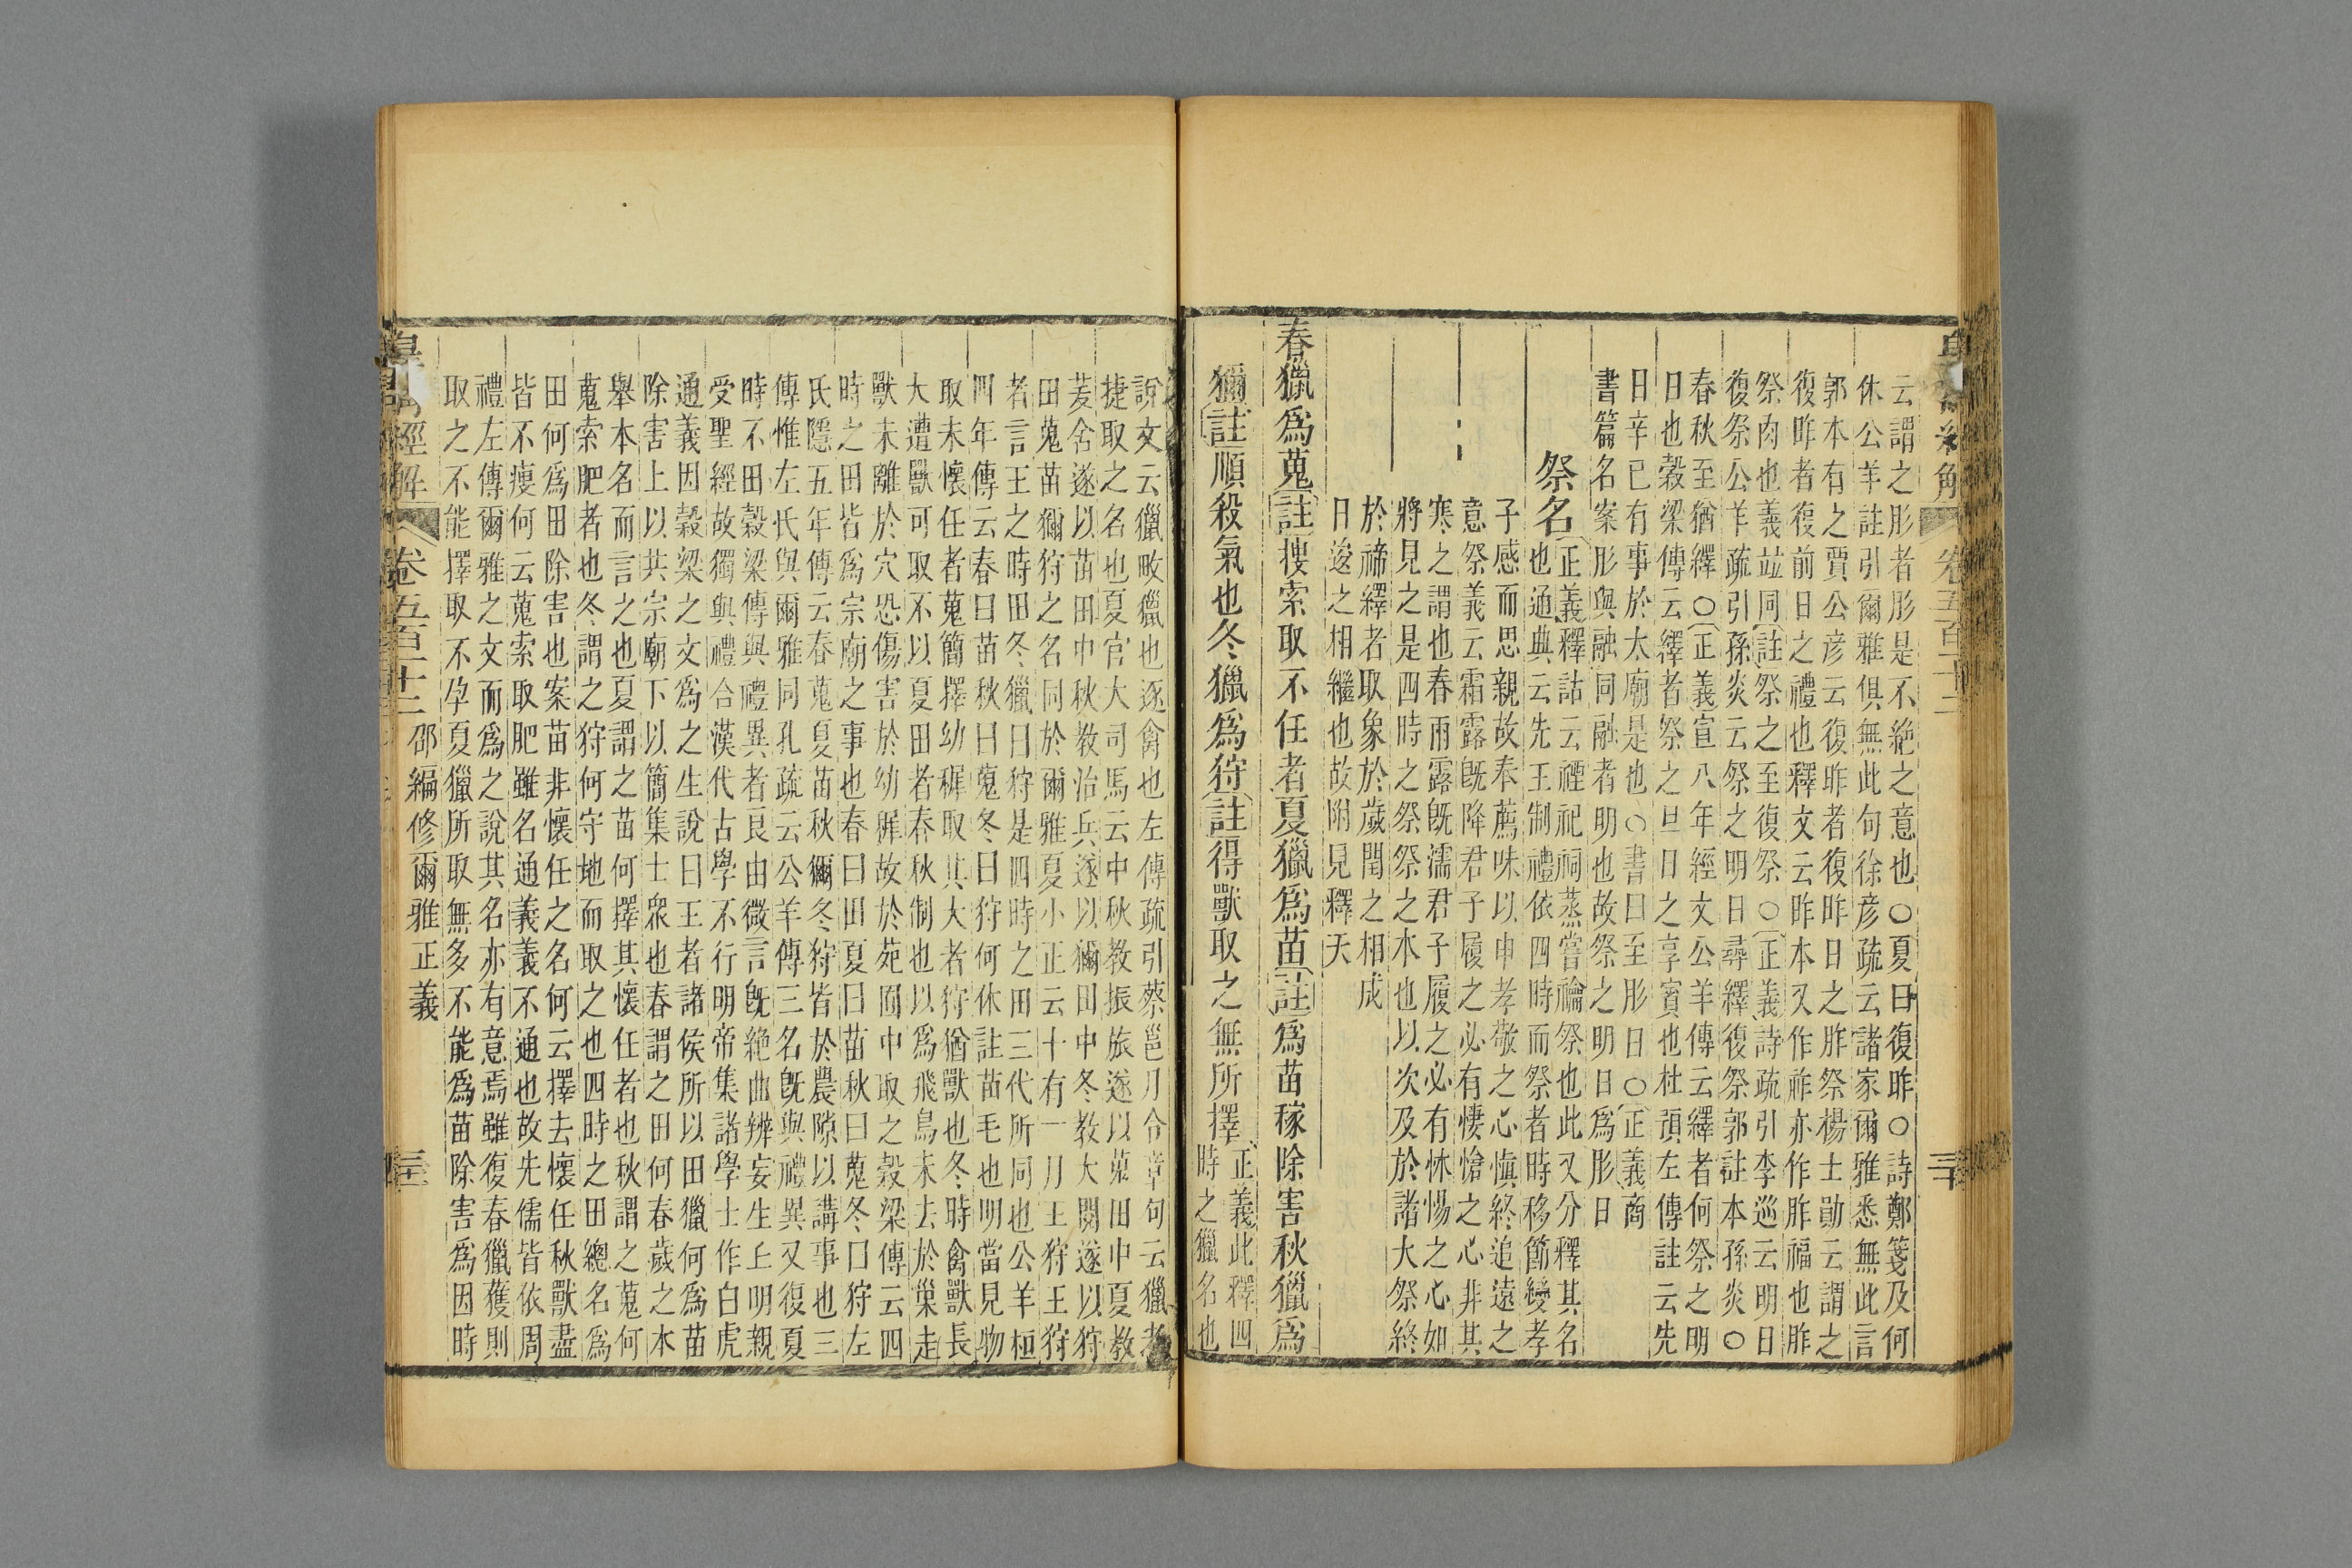 云謂之肜者肜是不絶之意也○夏曰復胙○詩鄭箋及何
休公羊註引爾雅俱無此句徐彥疏云諸家爾雅悉無此言
郭本有之賈公彥云復昨者復昨日之胙祭楊士勛云謂之
復昨者復前日之禮也釋文云昨本又作祚亦作胙福也胙
祭肉也義竝同註祭之至復祭○正義詩疏引李巡云明日
復祭公羊疏引孫炎云祭之明日尋繹復祭郭註本孫炎○
春秋至猶繹○正義宣八年經文公羊傳云繹者何祭之明
日也穀梁傳云繹者祭之旦日之享賓也杜預左傳註云先
日辛巳有事於太廟是也○書曰至肜日○正義商
書篇名案肜與融同融者明也故祭之明日爲肜日
祭名
正義釋詁云禋祀祠蒸嘗禴祭也此又分釋其名
也通典云先王制禮依四時而祭者時移節變孝
子感而思親故奉薦味以申孝敬之心愼終追遠之
意祭義云霜露既降君子履之必有悽愴之心非其
寒之謂也春雨露既濡君子履之必有怵惕之心如
將見之是四時之祭祭之本也以次及於諸大祭終
於禘繹者取象於歲閏之相成
日逡之相繼也故附見釋天
春獵爲蒐註搜索取不任者夏獵爲苗註爲苗稼除害秋獵爲
獮註順殺氣也冬獵爲狩註得獸取之無所擇
正義此釋四
時之獵名也
說文云獵畋獵也逐禽也左傳疏引蔡邕月令章句云獵者
捷取之名也夏官大司馬云中秋教振旅遂以蒐田中夏教
茇舍遂以苗田中秋教治兵遂以獮田中冬教大閱遂以狩
田蒐苗獮狩之名同於爾雅夏小正云十有一月王狩王狩
者言王之時田冬獵曰狩是四時之田三代所同也公羊桓
四年傳云春曰苗秋曰蒐冬曰狩何休註苗毛也明當見物
取未懷任者蒐簡擇幼穉取其大者狩猶獸也冬時禽獸長
大遭獸可取不以夏田者春秋制也以爲飛鳥未去於巢走
獸未離於穴恐傷害於幼穉故於苑囿中取之穀梁傳云四
時之田皆爲宗廟之事也春曰田夏曰苗秋曰蒐冬曰狩左
氏隱五年傳云春蒐夏苗秋獮冬狩皆於農隙以講事也三
傳惟左氏與爾雅同孔疏云公羊傳三名既與禮異又復夏
時不田穀梁傳與禮異者良由微言既絶曲辨妄生丘明親
受聖經故獨與禮合漢代古學不行明帝集諸學士作白虎
通義因穀梁之文爲之生說曰王者諸侯所以田獵何爲苗
除害上以共宗廟下以簡集士衆也春謂之田何春歲之本
舉本名而言之也夏謂之苗何擇其懷任者也秋謂之蒐何
蒐索肥者也冬謂之狩何守地而取之也四時之田總名爲
田何爲田除害也案苗非懷任之名何云擇去懷任秋獸盡
皆不瘦何云蒐索取肥雖名通義義不通也故先儒皆依周
禮左傳爾雅之文而爲之說其名亦有意焉雖復春獵獲則
取之不能擇取不孕夏獵所取無多不能爲苗除害爲因時
卷五百十二
邵編修爾雅正義